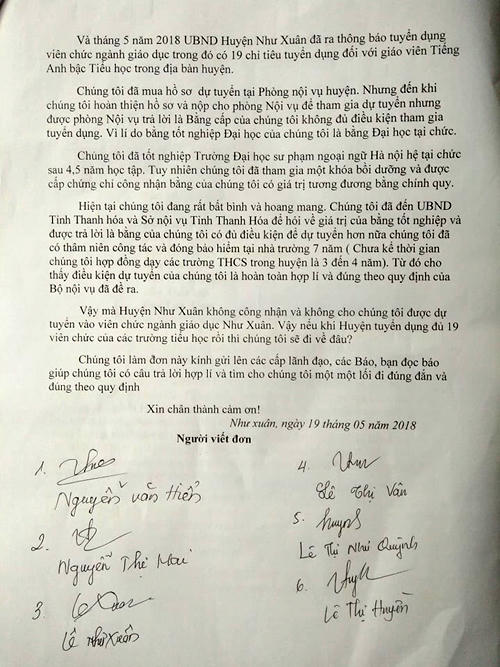 Và tháng 5 năm 2018 UBND Huyện Như Xuân đã ra thông báo tuyển dụng
viên chức ngành giáo dục trong đó có 19 chỉ tiêu tuyển dụng đối với giáo viên Tiếng
Anh bậc Tiểu học trong địa bàn huyện.
Chúng tôi đã mua hồ sơ dự tuyển tại Phòng nội vụ huyện. Nhưng đến khi
chúng tôi hoàn thiện hồ sơ và nộp cho phòng Nội vụ để tham gia dự tuyển nhưng
được phòng Nội vụ trả lời là Bằng cấp của chúng tôi không đủ điều kiện tham gia
tuyển dụng. Vì lí do bằng tốt nghiệp Đại học của chúng tôi là bằng Đại học tại chức.
Chúng tôi đã tốt nghiệp Trường Đại học sư phạm ngoại ngữ Hà nội hệ tại chức
sau 4,5 năm học tập. Tuy nhiên chúng tôi đã tham gia một khóa bồi dưỡng và được
cấp chứng chỉ công nhận bằng của chúng tôi có giá trị tương đương bằng chính quy.
Hiện tại chúng tôi đang rất bất bình và hoang mang. Chúng tôi đã đến UBND
Tỉnh Thanh hóa và Sở nội vụ Tỉnh Thanh Hóa để hỏi về giá trị của bằng tốt nghiệp và
được trả lời là bằng của chúng tôi có đủ điều kiện để dự tuyển hơn nữa chúng tôi đã
có thâm niên công tác và đóng bảo hiểm tại nhà trường 7 năm ( Chưa kể thời gian
chúng tôi hợp đồng dạy các trường THCS trong huyện là 3 đến 4 năm). Từ đó cho
thấy điều kiện dự tuyển của chúng tôi là hoàn toàn hợp lí và đúng theo quy định của
Bộ nội vụ đã đề ra.
Vậy mà Huyện Như Xuân không công nhận và không cho chúng tôi được dự
tuyển vào viên chức ngành giáo dục Như Xuân. Vậy nếu khi Huyện tuyển dụng đủ 19
viên chức của các trường tiểu học rồi thì chúng tôi sẽ đi về đâu?
Chúng tôi làm đơn này kính gửi lên các cấp lãnh đạo, các Báo, bạn đọc báo
giúp chúng tôi có câu trả lời hợp lí và tìm cho chúng tôi một một lối đi đúng đắn và
đúng theo quy định
Xin chân thành cảm ơn!
Như xuân, ngày 19 tháng 05 năm 2018
Người viết đơn
1.
Nguyễn văn Hiển
2.
Nguyễn Thị Mai
3.
Lê Như Xuân
4.
Lê Thị Vân
5. Huỳnh
Lê Thị Như Quỳnh
6.
Lê Thị Huyền